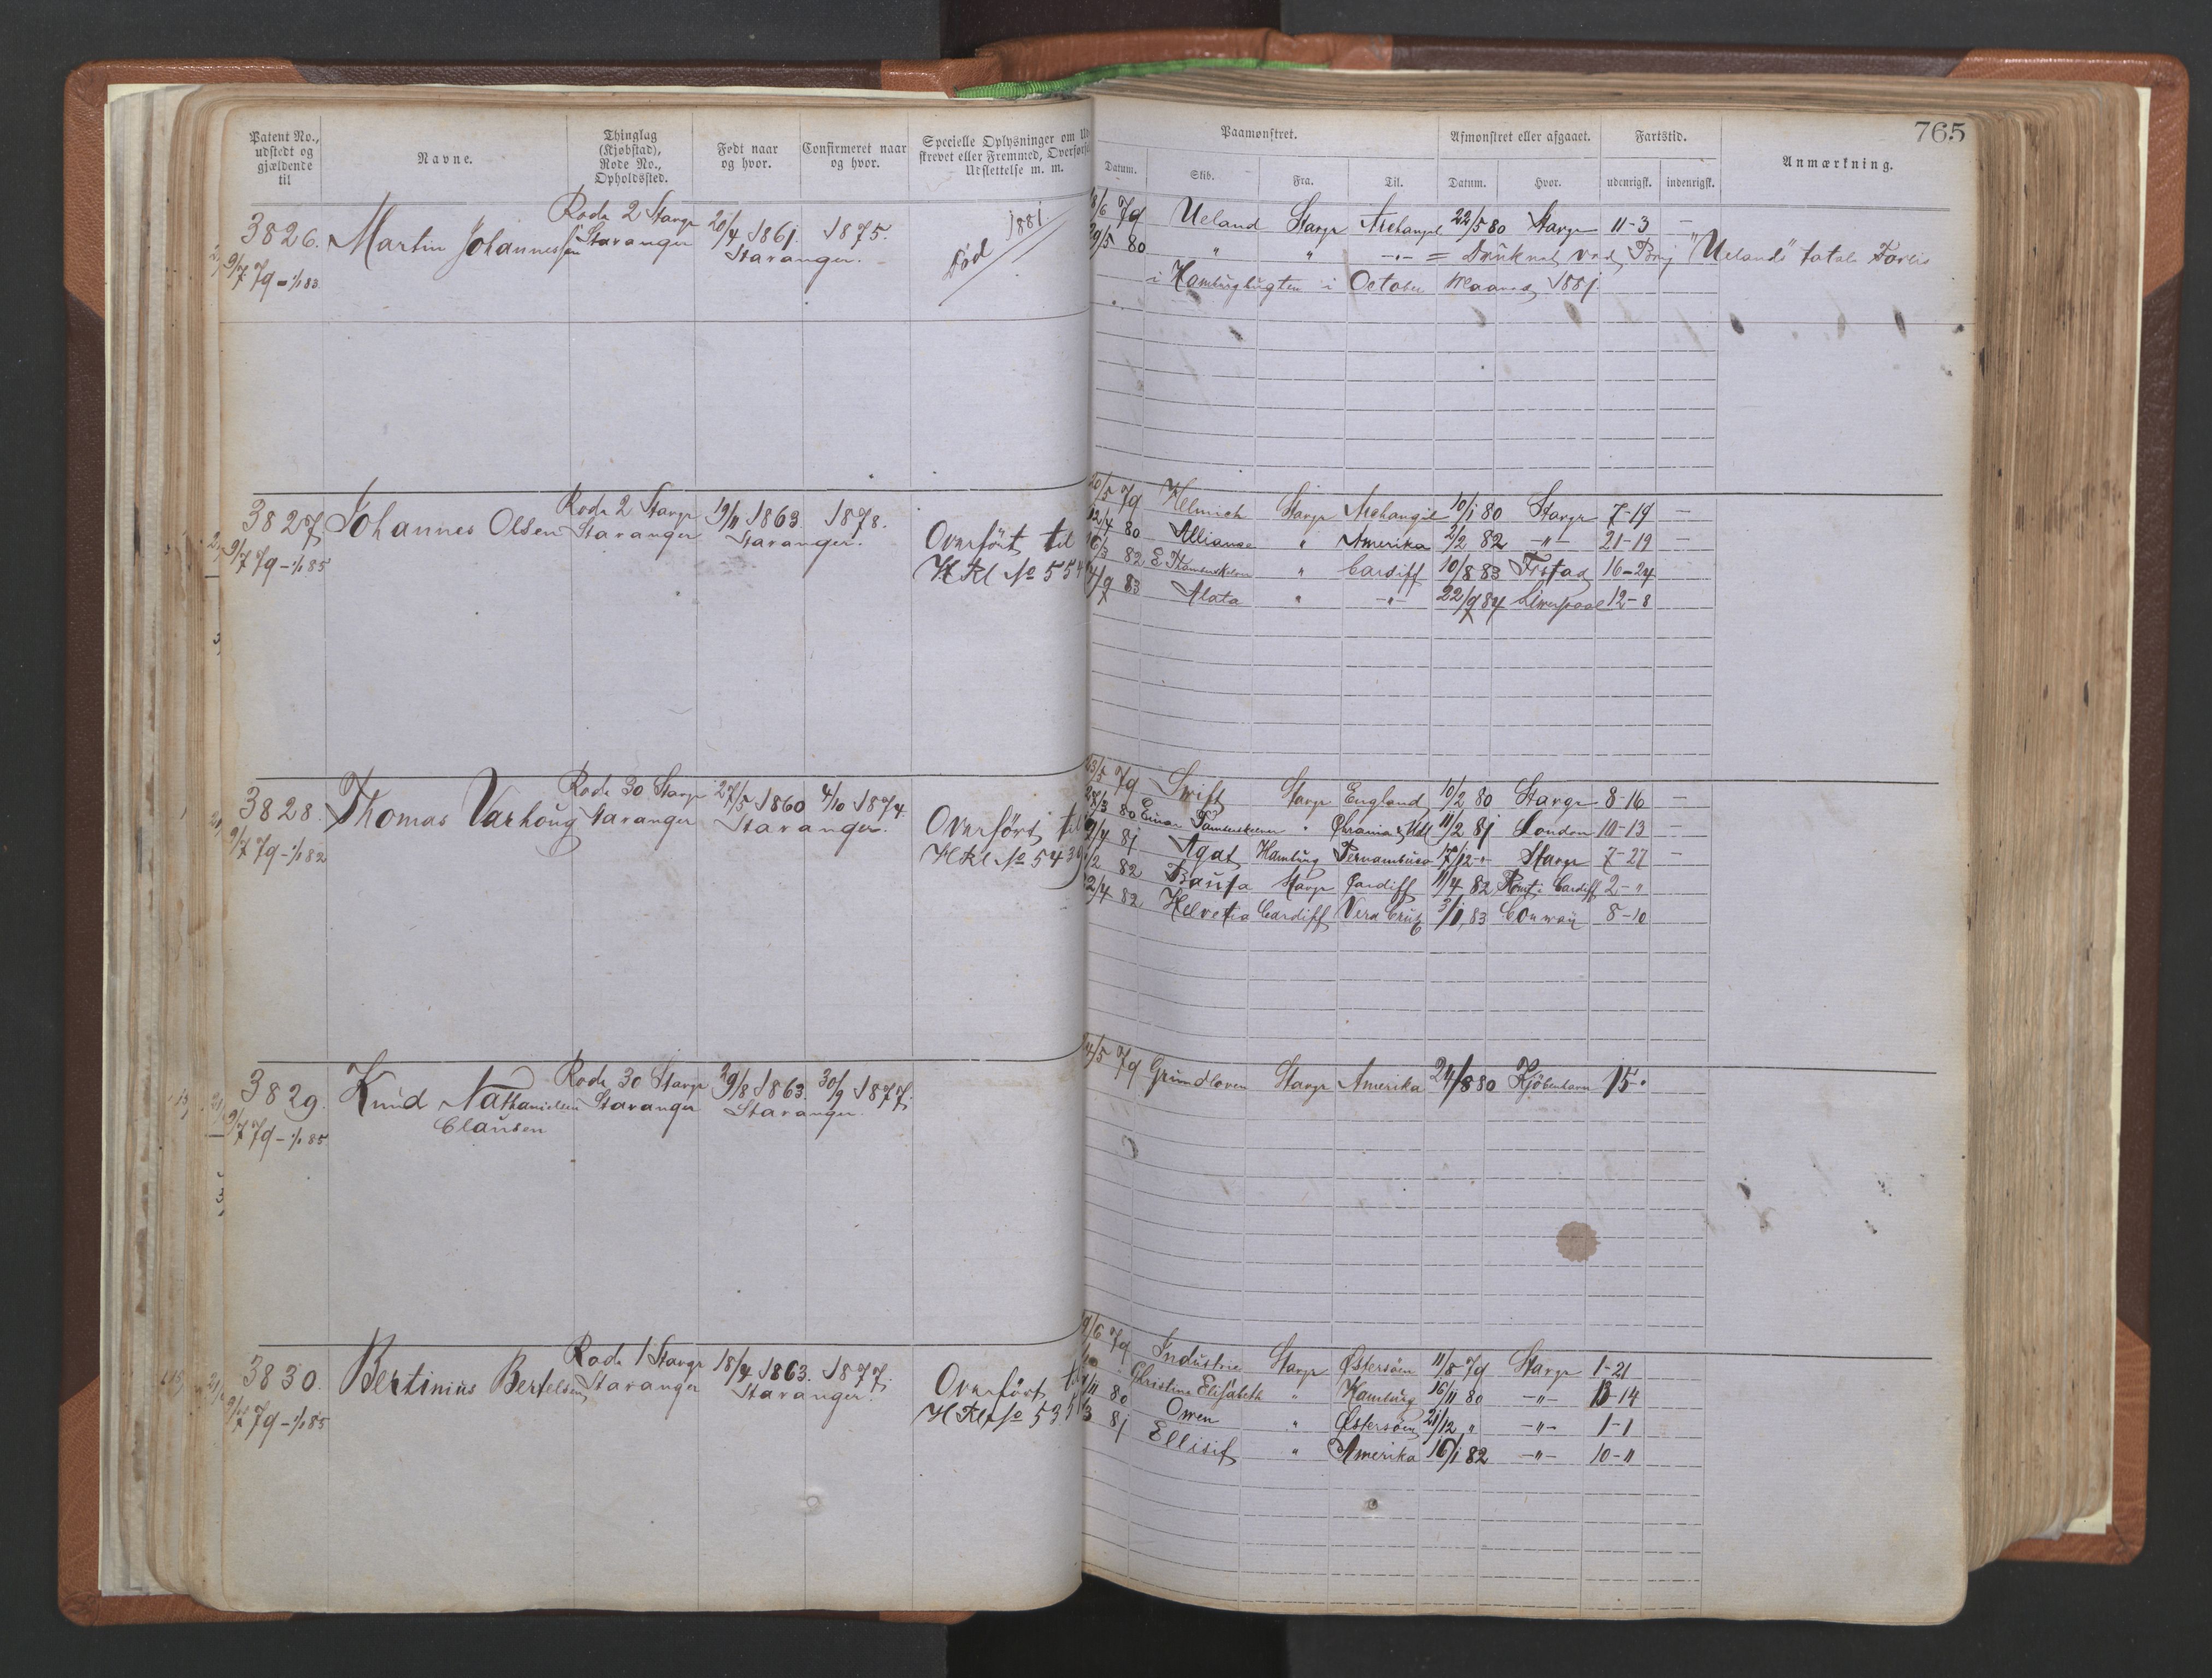 765
Patent No., udstedt og gjældende til
Navne.
Thinglag (Kjøbstad), Rode No., Opholdssted.
Født naar og hvor.
Confirmeret naar og hvor.
Specielle Oplysninger om
Udslettelse m. m.
Paamønstret.
Afmønstret eller afgaaet.
Fartstid.
Anmærkning.
Datum. Skib. Fra. Til. Datum. Hvor. udenrigsk. indenrigsk.
3826. Martin Johannessen Rode 2 Stavgr 20/4 1861. 1875. Død 1881
9/7 79 - 1/1 83 Stavanger Stavanger.
18/6 79 Ueland Stavgr Archangel 22/5 80 Stavgr 11-3 —
29/5 80 " " -"- = Druknet ved Brig "Ueland's" totale Forlis
i Hamburgbugten i October Maaned 1881.
3827. Johannes Olsen Rode 2 Stavgr 19/11 1863. 1878.
9/7 79 - 1/1 85 Stavanger Stavanger.
Overført til
HRl No 554
20/5 79 Helmich Stavgr Archangel 10/1 80 Stavgr 7-19 —
12/4 80 Alliance " Amerika 2/2 82 -"- 21-19 —
16/3 82 E Thamenskelven " Cardiff 10/8 83 Frstad 16-24
83 Alata " -"- 22/9 84 Liverpool 12-8
3828. Thomas Varhoug Rode 30 Stavgr 27/5 1860 4/10 1874.
9/7 79 - 1/1 82 Stavanger Stavanger.
Overført til
HRl No 543
23/5 79 Swift Stavgr England 10/2 80 Stavgr 8-16 —
80 Einar " 11/2 81 London 10-13 —
2/4 81 Agat Hamburg Pernambuco 17/12 " Stavgr 7-27 —
82 Stavgr Cardiff 11/4 82 Rømt i Cardiff 2-"
12/4 82 Helvetia Cardiff Vera Cruz 3/1 83 Conway 8-10
3829. Knud Nathanielsen Rode 30 Stavgr 29/8 1863. 30/9 1877.
9/7 79 - 1/1 85 Clausen Stavanger Stavanger.
79 Grundloven Stavgr Amerika 24/8 80 Kjöbenhavn 15 "
3830. Bertinius Bertelsen Rode 1 Stavgr 18/4 1863. 1877.
9/7 79 - 1/1 85 Stavanger Stavanger.
Overført til
HRl No 535
79 Industrie Stavgr Østersøen 11/8 79 Stavgr 1-21
Christine Elisabeth " Hamburg 16/11 80 -"- 13-14
80 Owen " Østersøen 21/12 " -"- 1-1
81 Ellisif " Amerika 16/1 82 -"- 10-11